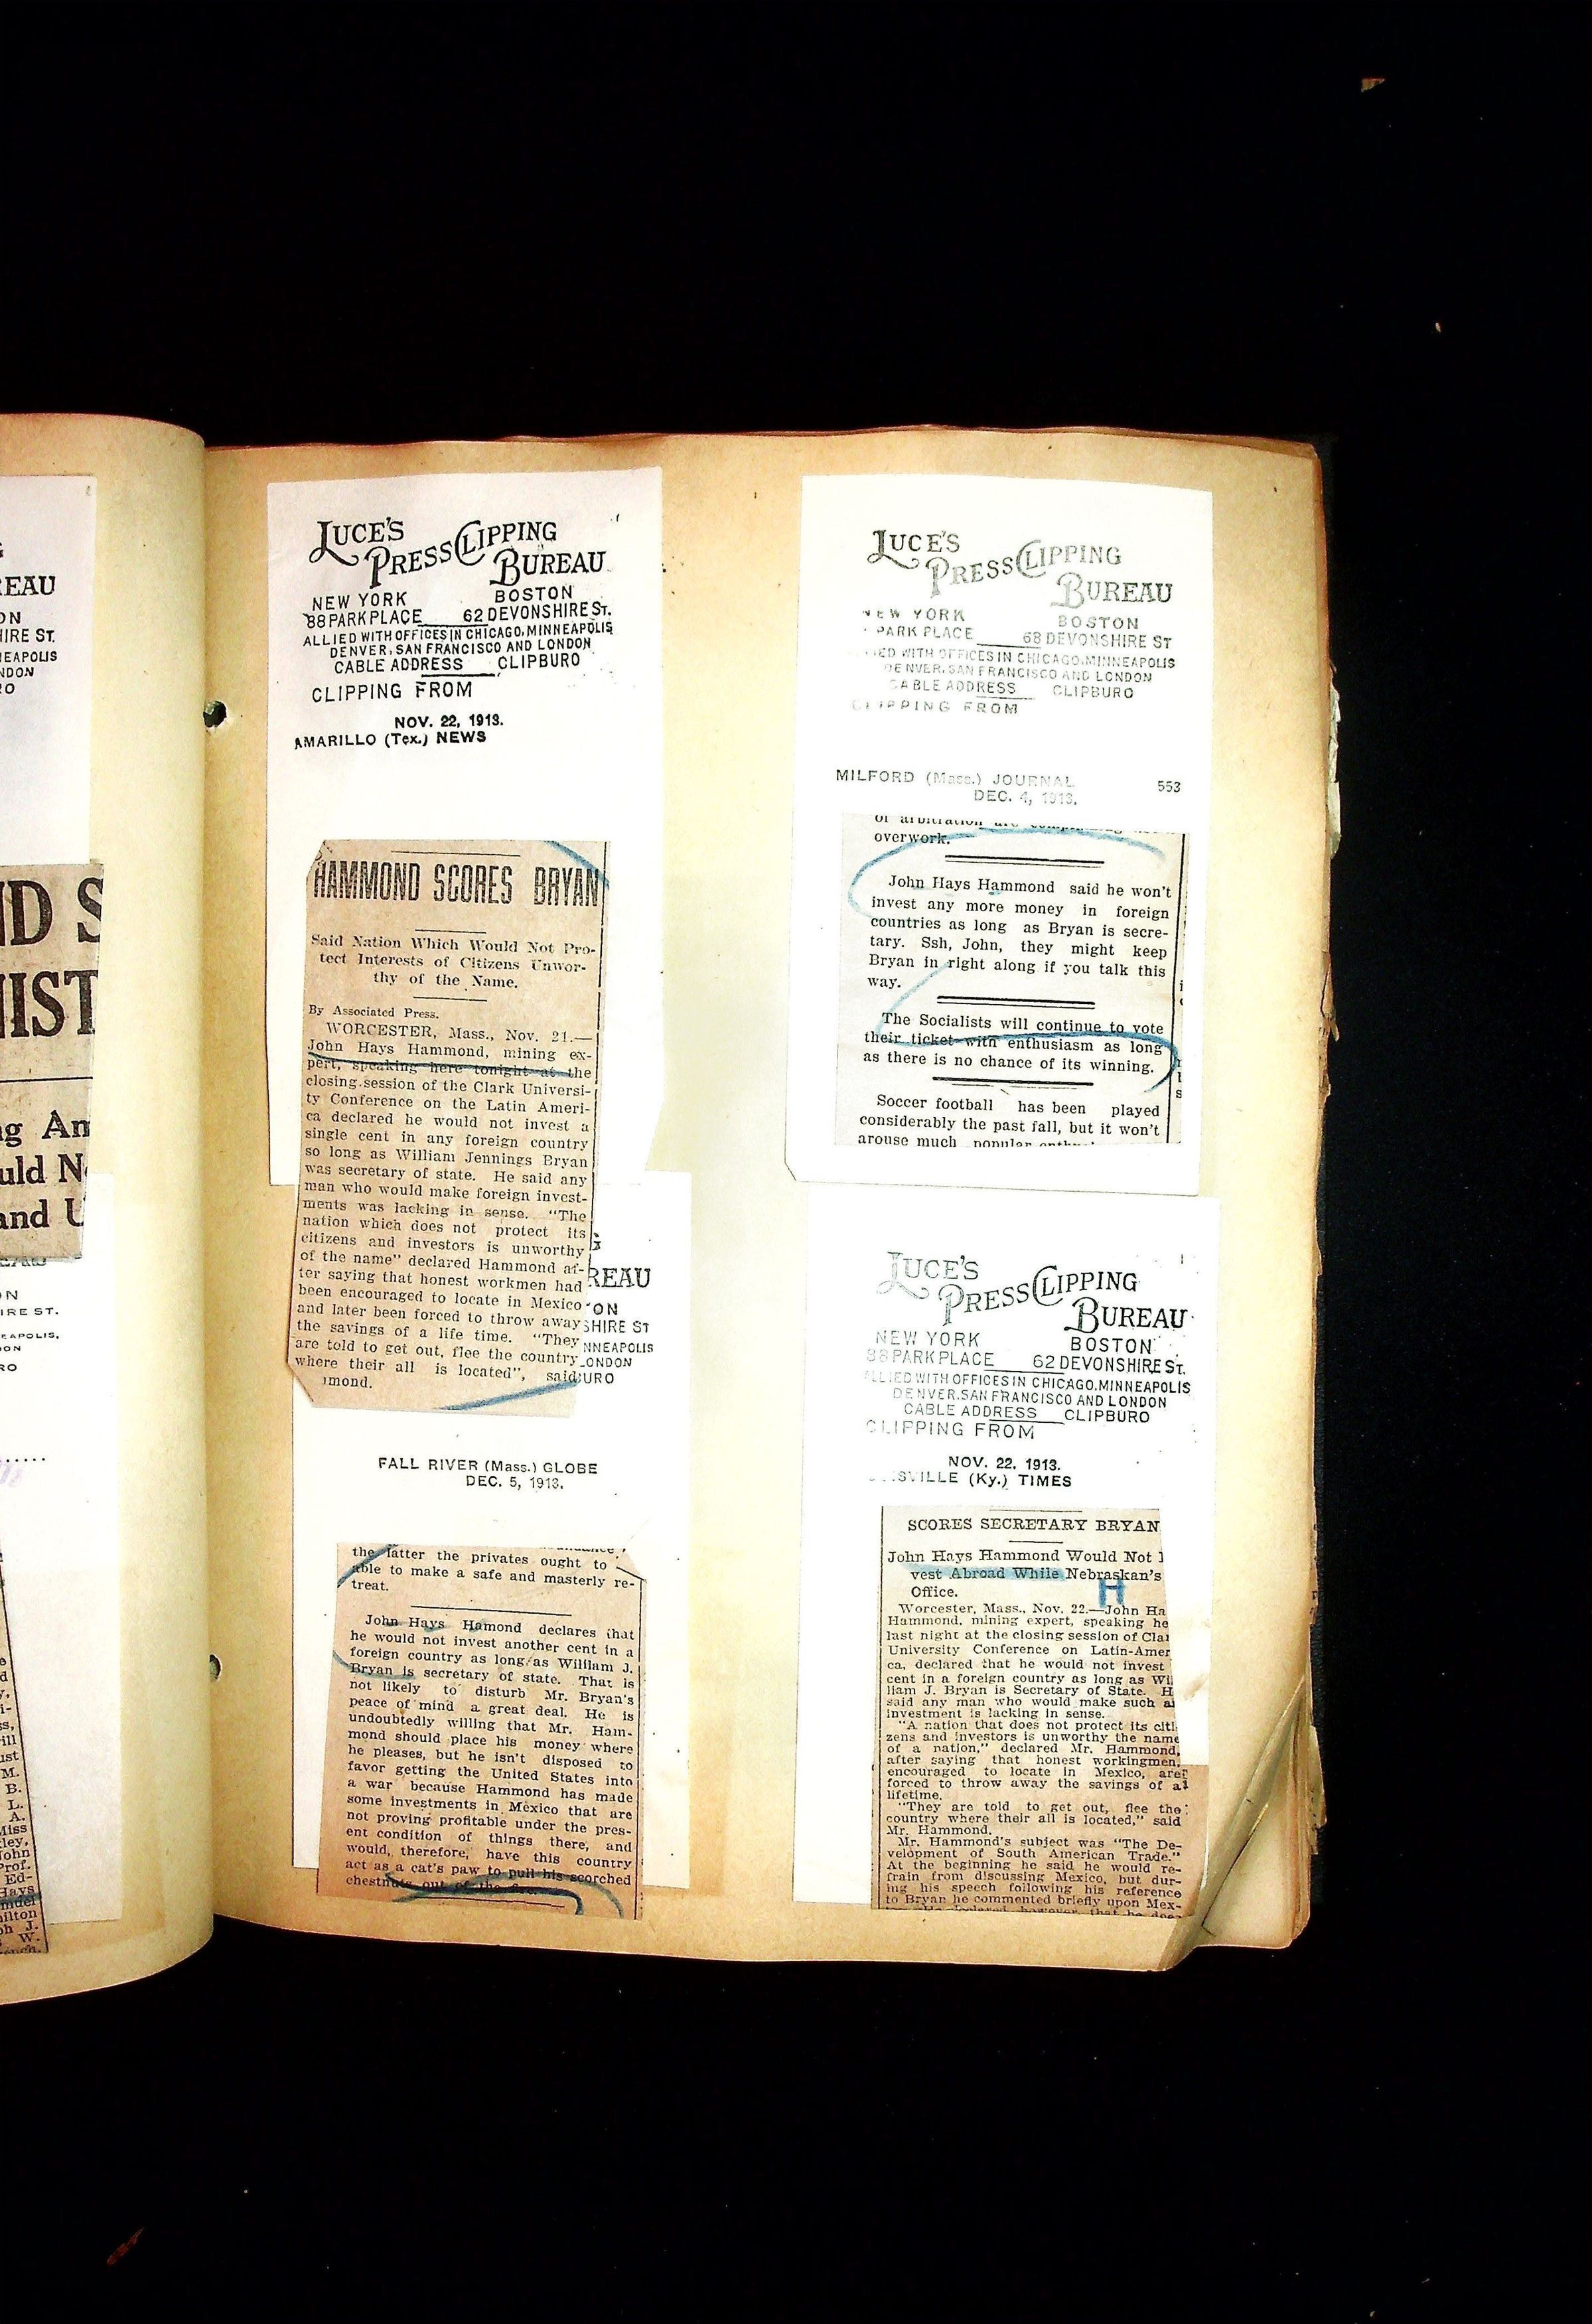 LUCE'S
PRESS CLIPPING
BUREAU
NEW YORK BOSTON
88 PARK PLACE 62 DEVONSHIRE ST.
ALLIED WITH OFFICES IN CHICAGO, MINNEAPOLIS
DENVER, SAN FRANCISCO AND LONDON
CABLE ADDRESS CLIPBURO
CLIPPING FROM
NOV. 22, 1913.
AMARILLO (Tex.) NEWS
HAMMOND SCORES BRYAN
Said Nation Which Would Not Pro-
tect Interests of Citizens Unwor-
thy of the Name.
By Associated Press.
WORCESTER, Mass., Nov. 21.—
John Hays Hammond, mining ex-
pert, speaking here tonight at the
closing session of the Clark Universi-
ty Conference on the Latin Ameri-
ca declared he would not invest a
single cent in any foreign country
so long as William Jennings Bryan
was secretary of state. He said any
man who would make foreign invest-
ments was lacking in sense. "The
nation which does not protect its
citizens and investors is unworthy
of the name" declared Hammond af-
ter saying that honest workmen had
been encouraged to locate in Mexico
and later been forced to throw away
the savings of a life time. "They
are told to get out, flee the country
where their all is located", said
mond.
REAU
ON
SHIRE ST
NNEAPOLIS
LONDON
BURO
FALL RIVER (Mass.) GLOBE
DEC. 5, 1913.
the latter the privates ought to
able to make a safe and masterly re-
treat.
John Hays Hamond declares that
he would not invest another cent in a
foreign country as long as William J.
Bryan is secretary of state. That is
not likely to disturb Mr. Bryan's
peace of mind a great deal. He is
undoubtedly willing that Mr. Ham-
mond should place his money where
he pleases, but he isn't disposed to
favor getting the United States into
a war because Hammond has made
some investments in Mexico that are
not proving profitable under the pres-
ent condition of things there, and
would, therefore, have this country
act as a cat's paw to pull his scorched
chestnuts out of the fire.
LUCE'S
PRESS CLIPPING
BUREAU
NEW YORK BOSTON
PARK PLACE 68 DEVONSHIRE ST
IED WITH OFFICES IN CHICAGO, MINNEAPOLIS
DENVER, SAN FRANCISCO AND LONDON
CABLE ADDRESS CLIPBURO
CLIPPING FROM
MILFORD (Mass.) JOURNAL 553
DEC. 4, 1913.
of arbitration are
overwork.
John Hays Hammond said he won't
invest any more money in foreign
countries as long as Bryan is secre-
tary. Ssh, John, they might keep
Bryan in right along if you talk this
way.
The Socialists will continue to vote
their ticket with enthusiasm as long
as there is no chance of its winning.
Soccer football has been played
considerably the past fall, but it won't
arouse much popular
LUCE'S
PRESS CLIPPING
BUREAU
NEW YORK BOSTON
88 PARK PLACE 62 DEVONSHIRE ST.
ALLIED WITH OFFICES IN CHICAGO, MINNEAPOLIS
DENVER, SAN FRANCISCO AND LONDON
CABLE ADDRESS CLIPBURO
CLIPPING FROM
NOV. 22, 1913.
SVILLE (Ky.) TIMES
SCORES SECRETARY BRYAN
John Hays Hammond Would Not
vest Abroad While Nebraskan's
Office.
H
Worcester, Mass., Nov. 22.—John Ha
Hammond, mining expert, speaking he
last night at the closing session of Cla
University Conference on Latin-Amer
ca, declared that he would not invest
cent in a foreign country as long as Wi
liam J. Bryan is Secretary of State. H
said any man who would make such a
investment is lacking in sense.
"A nation that does not protect its citi
zens and investors is unworthy the name
of a nation," declared Mr. Hammond,
after saying that honest workingmen,
encouraged to locate in Mexico, are
forced to throw away the savings of a
lifetime.
"They are told to get out, flee the
country where their all is located," said
Mr. Hammond.
Mr. Hammond's subject was "The De-
velopment of South American Trade."
At the beginning he said he would re-
frain from discussing Mexico, but dur-
ing his speech following his reference
to Bryan he commented briefly upon Mex-
He declared, however, that he does